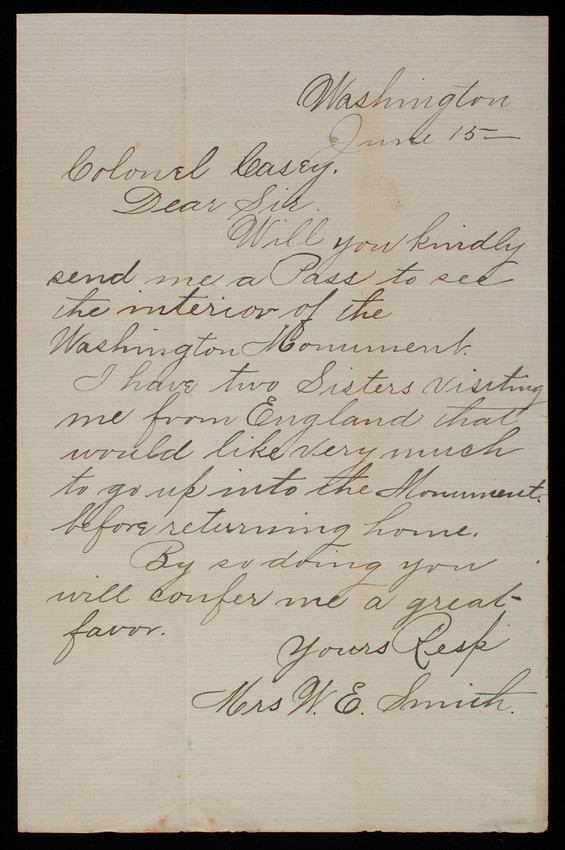 Washington
June 15—
Colonel Casey.
Dear Sir.
Will you kindly
send me a Pass to see
the interior of the
Washington Monument.
I have two Sisters visiting
me from England that
would like very much
to go up into the Monument.
before returning home.
By so doing you
will confer me a great
favor.
Yours Resp
Mrs W. E. Smith.